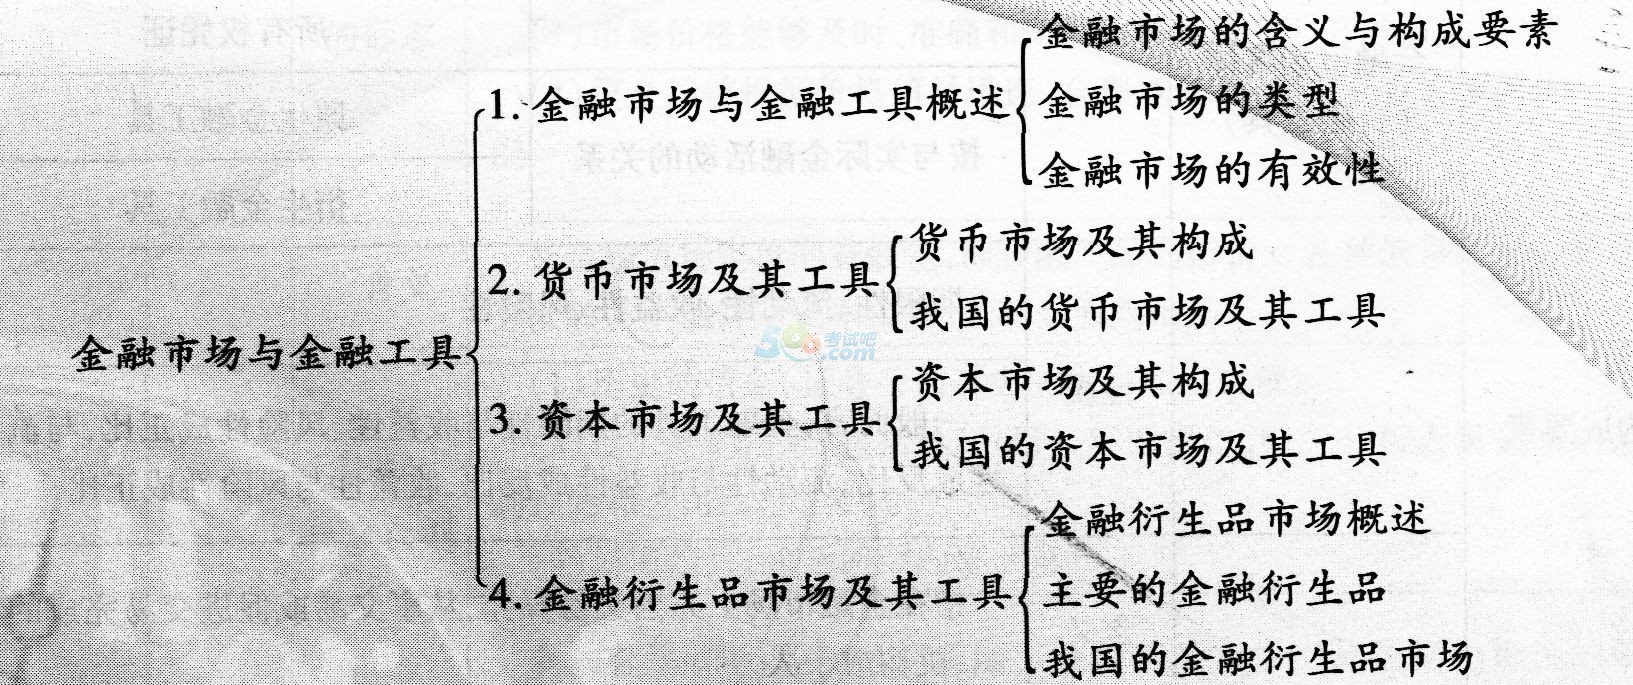 金融市场与金融工具
1. 金融市场与金融工具概述
金融市场的含义与构成要素
金融市场的类型
金融市场的有效性
2. 货币市场及其工具
货币市场及其构成
我国的货币市场及其工具
3. 资本市场及其工具
资本市场及其构成
我国的资本市场及其工具
4. 金融衍生品市场及其工具
金融衍生品市场概述
主要的金融衍生品
我国的金融衍生品市场
考试吧
.com